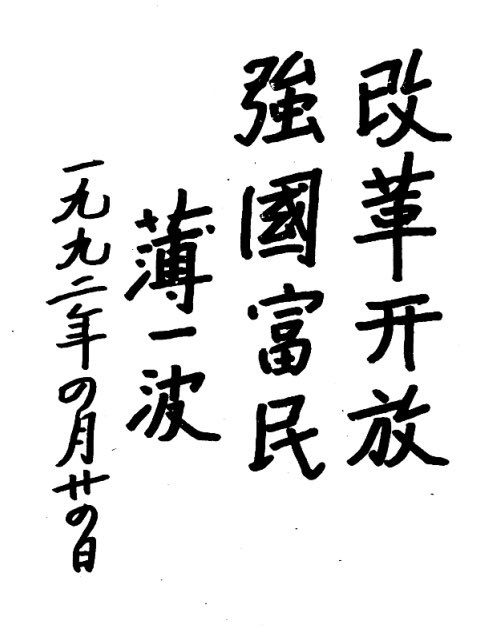 改革开放
強國富民
薄一波
一九九二年四月廿四日